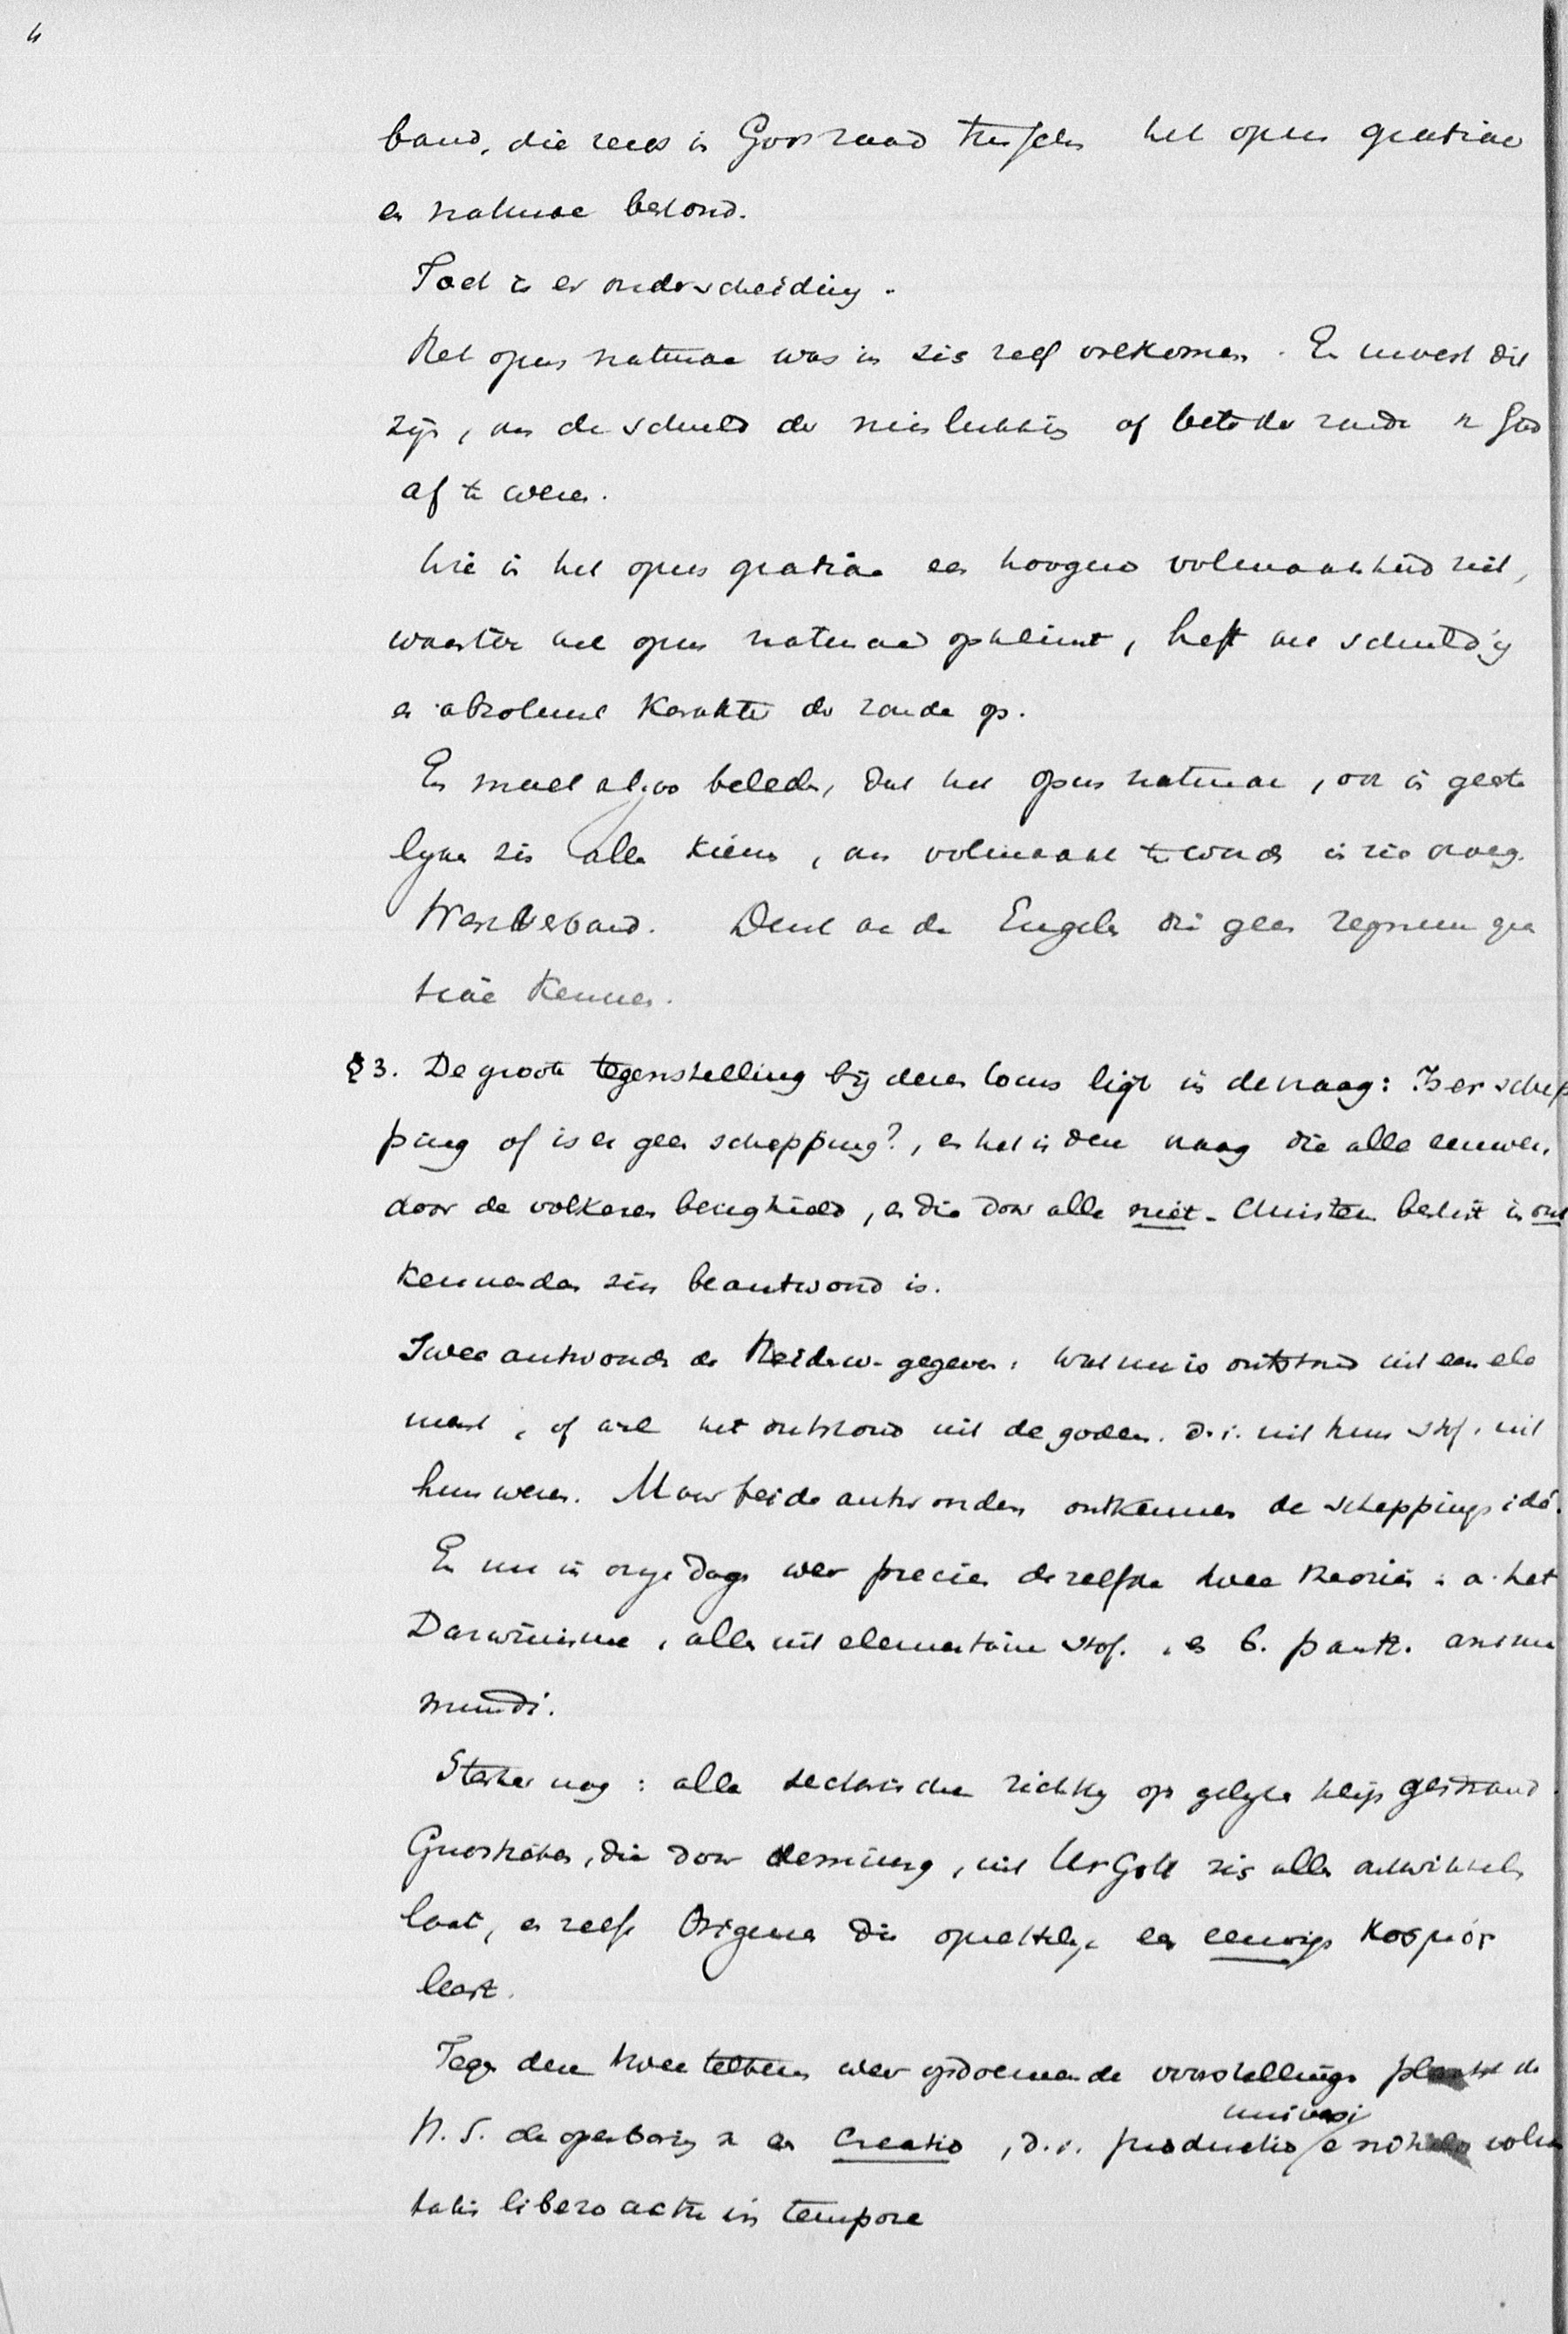 4
band, die reeds in Gods raad tusschen het opus gratiae
en naturae bestond.
Toch is er onderscheiding.
Het opus naturae was in zich zelf volkomen. En moest dit
zijn, om de schuld der mislukking of beter der zonde v. God
af te weren.
Wie in het opus gratiae een hoogere volmaaktheid ziet,
waartoe het opus naturae opklimt, heft het schuldig
en absoluut karakter der zonde op.
Er moet alzoo beleden, dat het opus naturae, ook in geeste
lijken zin alle kiem, om volmaakt te worden in zich droeg.
Werkverband. Denk aan de Engelen die geen regnum gra
tiae kennen.
§ 3. De groote tegenstelling bij dezen locus ligt in de vraag: Is er schep
ping of is er geen schepping?, en het is deze vraag die alle eeuwen
door de volkeren bezighield, en die door alle niet-Christen beslist in ont
kennenden zin beantwoord is.
Twee antwoorden de Heidenw. gegeven: wat nu is ontstond uit een ele
ment, of wel het ontstond uit de goden. d.i. uit hun stof. uit
hun wezen. Maar beide antwoorden ontkennen de scheppingsidé.
En nu in onze dagen weer precies dezelfde twee theoriën: a. het
Darwinisme, alles uit elementaire stof. en b. panth. anima
mundi.
Sterker nog: alle sectarische richting op gelijke klip gestrand.
Gnostieken, die door , uit UrGott zich alles ontwikkelen
laat, en zelfs Origenes die opzettelijk een eeuwige κοσμος
leert.
Tegen deze twee telkens weer opdoemende voorstellingen plaatst de
H. S. de openbaring v. een Creatio, d.i. productio universi e nihilo volun
tatis libero actu in tempore